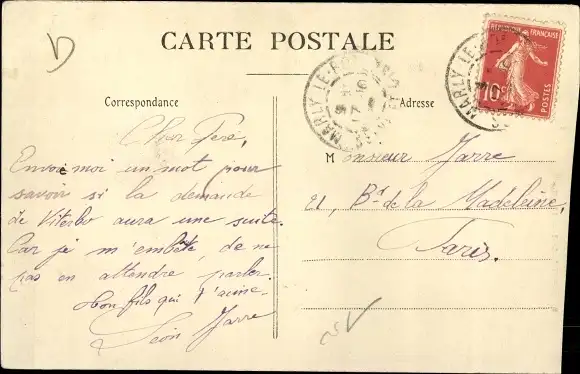 CARTE POSTALE
Correspondance
Adresse
RÉPUBLIQUE FRANÇAISE
10c
POSTES
MARLY-LE-ROI
MARLY LE-
Cher Père,
Envoie moi un mot pour
savoir si la demande
de Viterbo aura une suite.
Car je m'embête, de ne
pas en attendre parler.
Mon fils qui t'aime.
Léon Jarre
Monsieur Jarre
21, Bd de la Madeleine,
Paris.